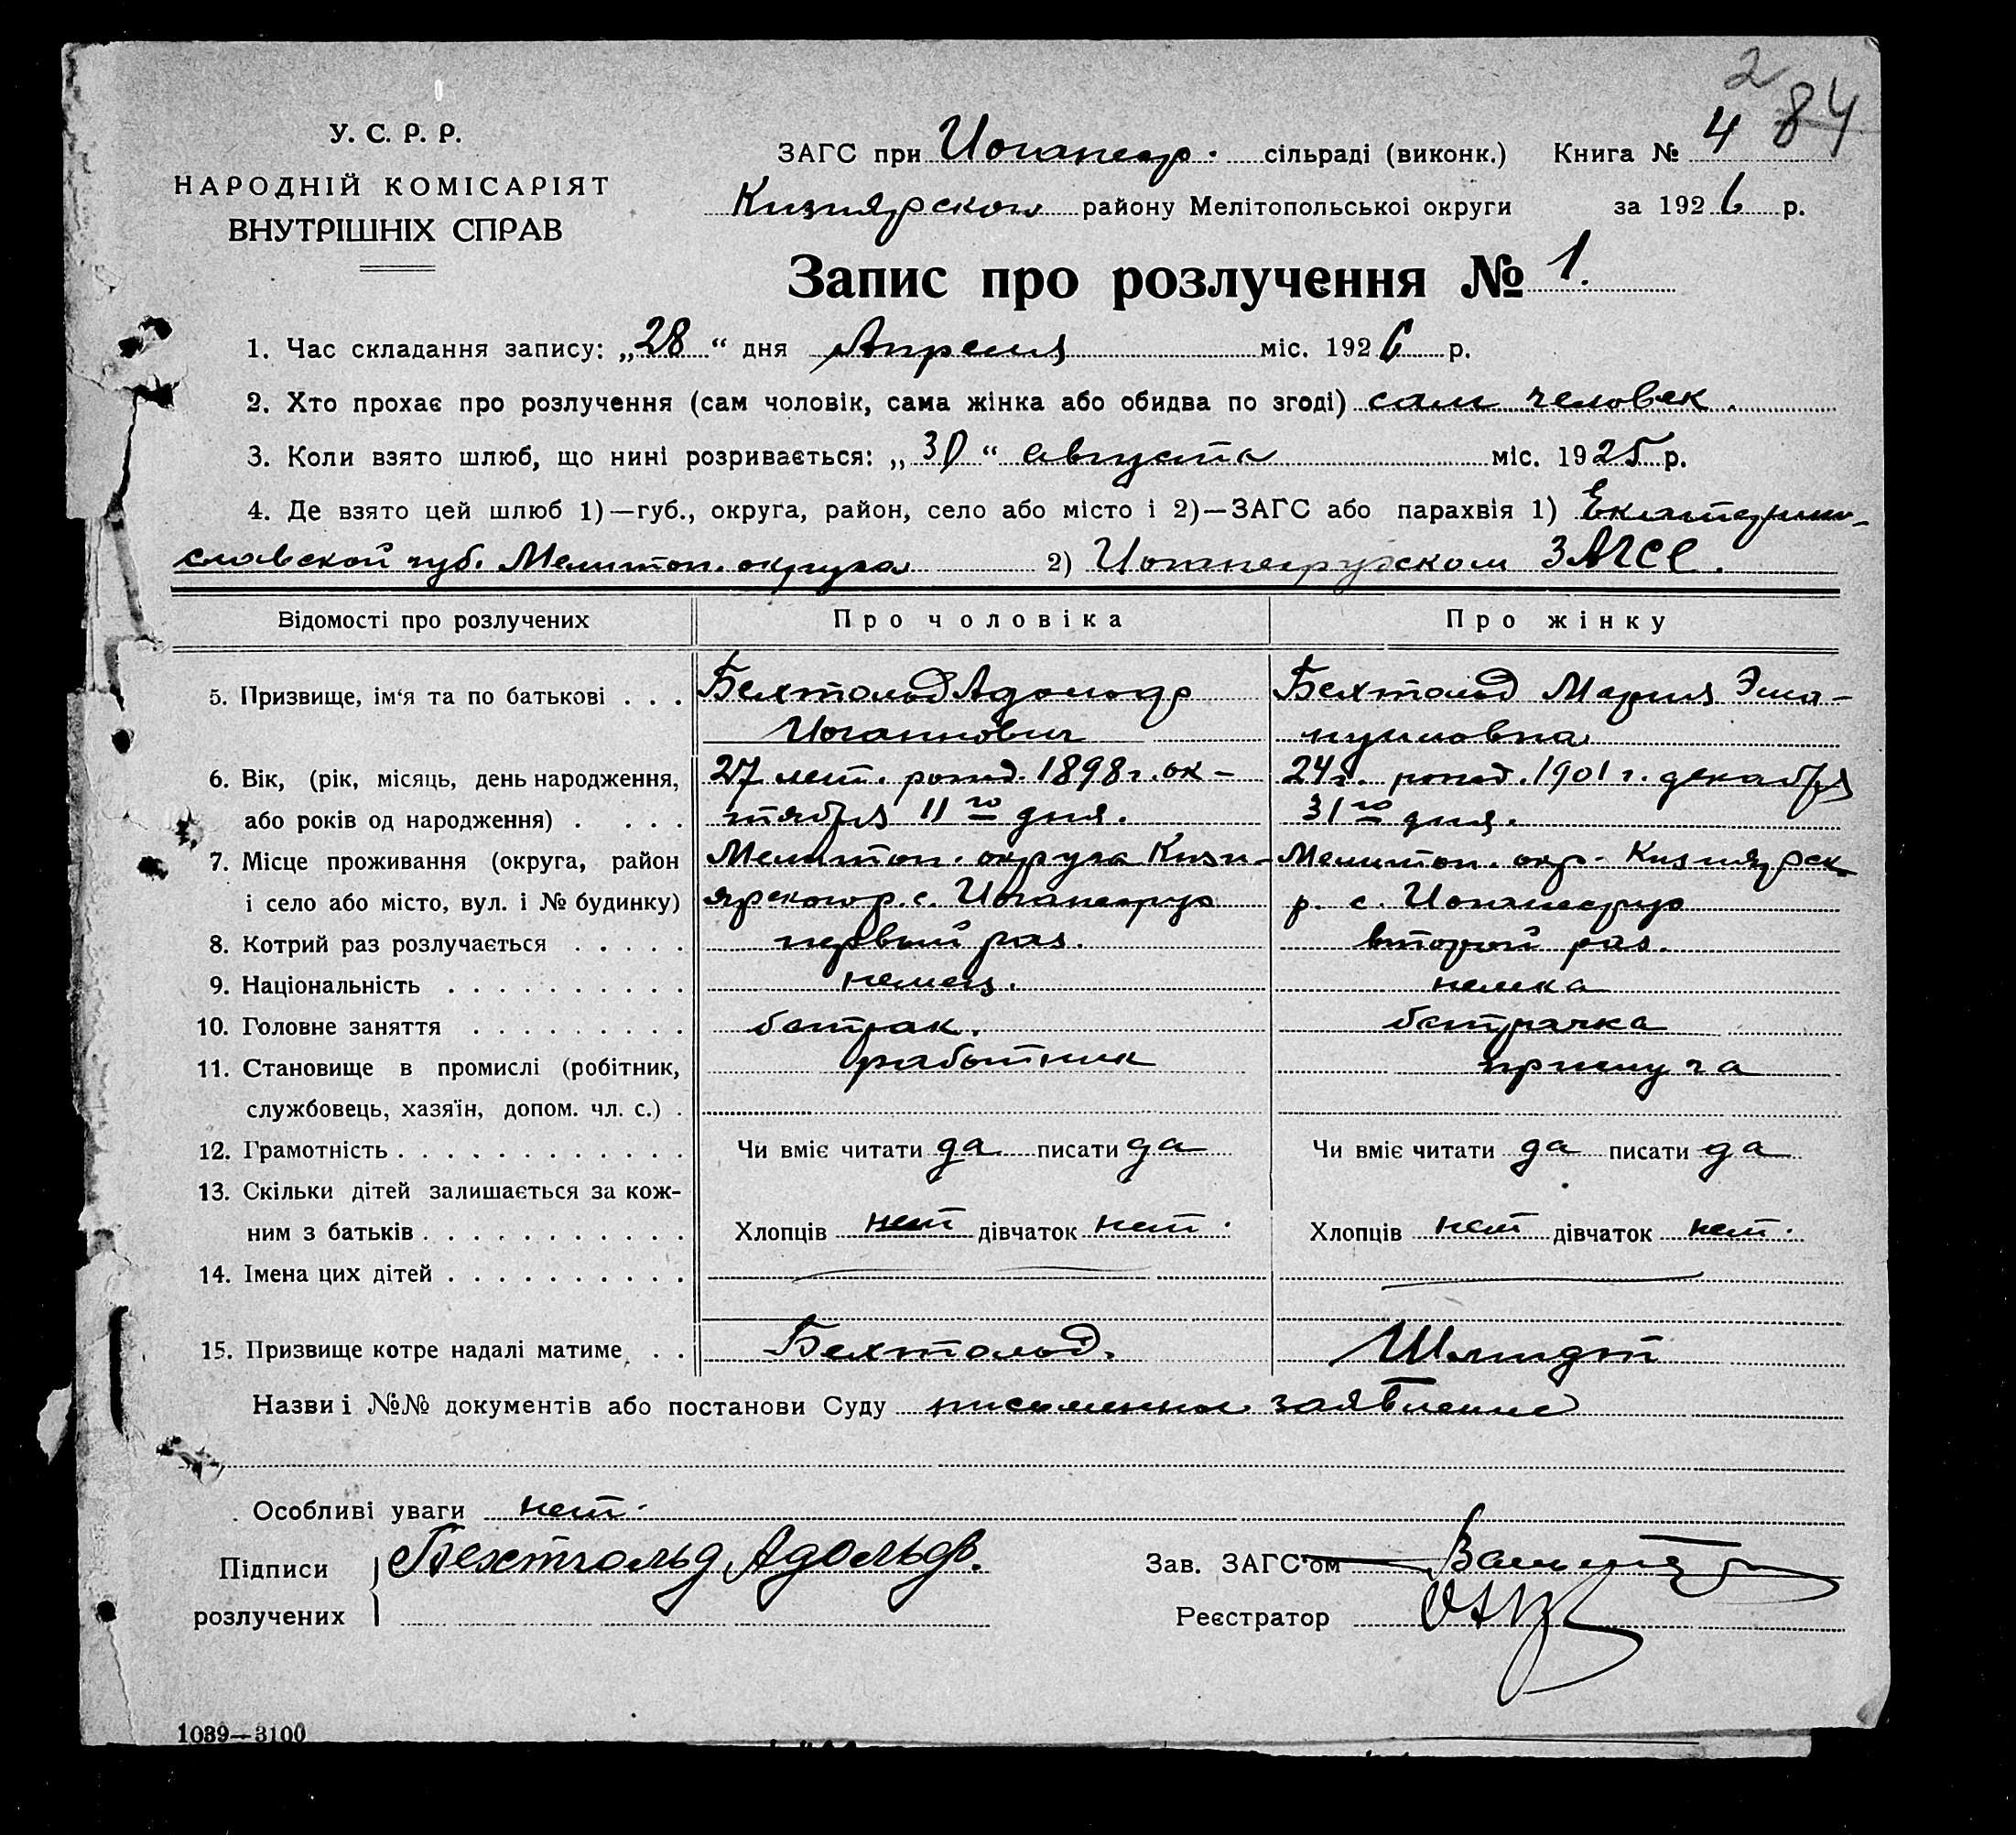 2
84
У. С. Р. Р.
НАРОДНІЙ КОМІСАРІЯТ
ВНУТРІШНІХ СПРАВ
ЗАГС при Иоганеср. сільраді (виконк.) Книга № 4
Кизиярском району Мелітопольської округи за 1926 р.
Запис про розлучення № 1.
1. Час складання запису: „28“ дня Апреля міс. 1926 р.
2. Хто прохає про розлучення (сам чоловік, сама жінка або обидва по згоді) сам человек.
3. Коли взято шлюб, що нині розривається: „30“ августа міс. 1925 р.
4. Де взято цей шлюб 1)—губ., округа, район, село або місто і 2)—ЗАГС або парахвія 1) Екатерино-
славской губ. Мелитоп. округа 2) Иоганесрусском ЗАГСе.
Відомості про розлучених Про чоловіка Про жінку
5. Призвище, ім‘я та по батькові . . . Бехтольд Адольф Бехтольд Мария Эма-
Иоганнович нуиловна
6. Вік, (рік, місяць, день народження, 27 лет. рожд. 1898 г. ок- 24 г. рожд. 1901 г. декабря
або років од народження) . . . . тября 11го дня. 31го дня.
7. Місце проживання (округа, район Мелитоп. округа Кизи- Мелитоп. окр. Кизиярск.
і село або місто, вул. і № будинку) ярского р. с. Иоганесрус р. с. Иоганесрус
8. Котрий раз розлучається . . . . . первый раз. второй раз.
9. Національність . . . . . . . . . . немец. немка
10. Головне заняття . . . . . . . . . батрак. батрачка
11. Становище в промислі (робітник, работник прислуга
службовець, хазяїн, допом. чл. с.) .
12. Грамотність . . . . . . . . . . . . . Чи вміє читати да писати да Чи вміє читати да писати да
13. Скільки дітей залишається за кож-
ним з батьків . . . . . . . . . . . Хлопців нет дівчаток нет. Хлопців нет дівчаток нет.
14. Імена цих дітей . . . . . . . . . .
15. Призвище котре надалі матиме . . Бехтольд. Шмидт
Назви і №№ документів або постанови Суду письменное заявление
Особливі уваги нет.
Підписи Бехтгольд Адольф. Зав. ЗАГС‘ом
розлучених Реєстратор
1039—3100